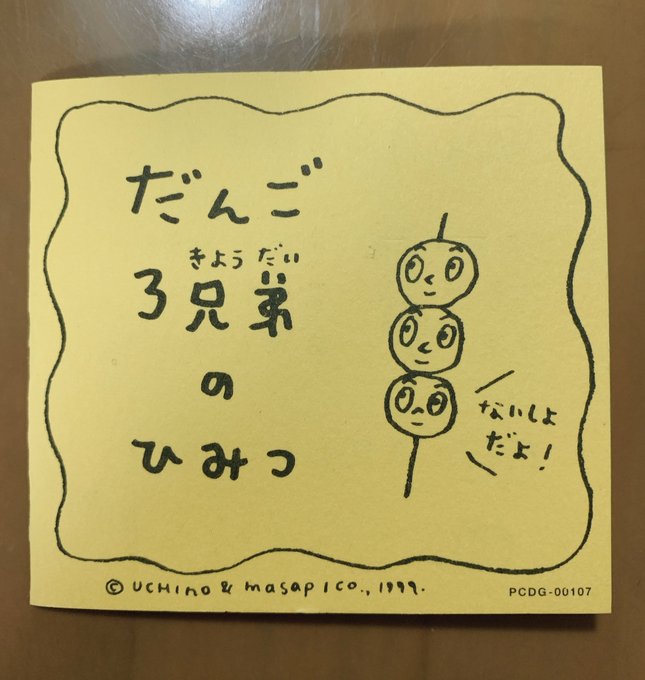 だんご
きょうだい
3兄弟
の
ひみつ
ないしょ
だよ!
© UCHINO & masapico., 1999.
PCDG-00107